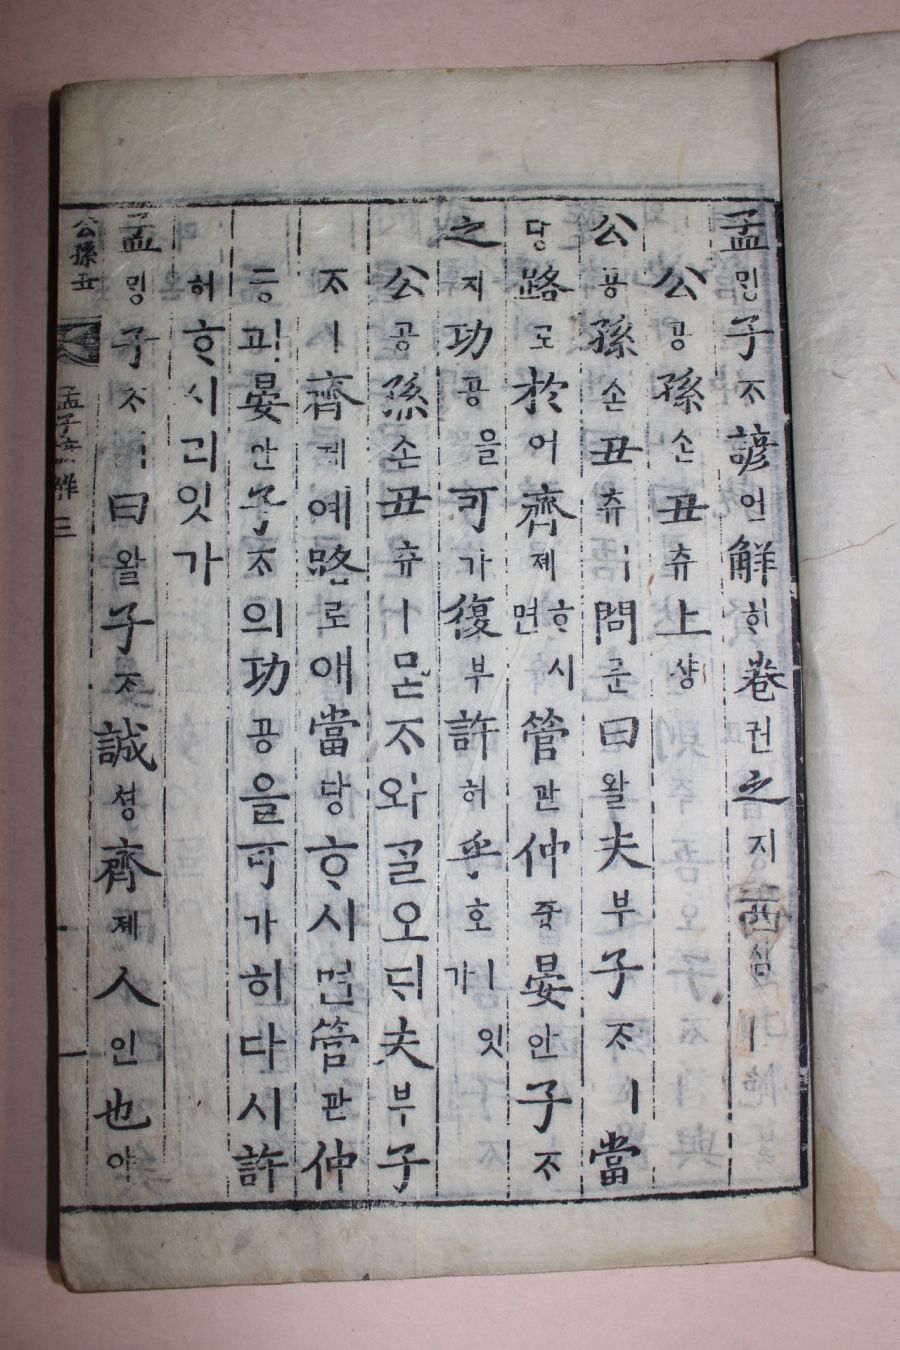 孟ᄆᆡᆼ子ᄌᆞ諺언解ᄒᆡ卷권之지
公공孫손丑츄上샹
公공孫손丑츄ㅣ問문曰왈夫부子ᄌᆞㅣ當
당路로於어齊졔ᄒᆞ시면管관仲즁晏안子ᄌᆞ
之지功공을可가復부許허乎호ㅣ잇가
公공孫손丑츄ㅣ묻ᄌᆞ와ᄀᆞᆯ오ᄃᆡ夫부子
ᄌᆞㅣ齊졔예路로애當당ᄒᆞ시면管관仲
즁과晏안子ᄌᆞ의功공을可가히다시許
허ᄒᆞ시리잇가
孟ᄆᆡᆼ子ᄌᆞㅣ曰왈子ᄌᆞ誠셩齊졔人인也야
公孫丑
孟子諺解 三